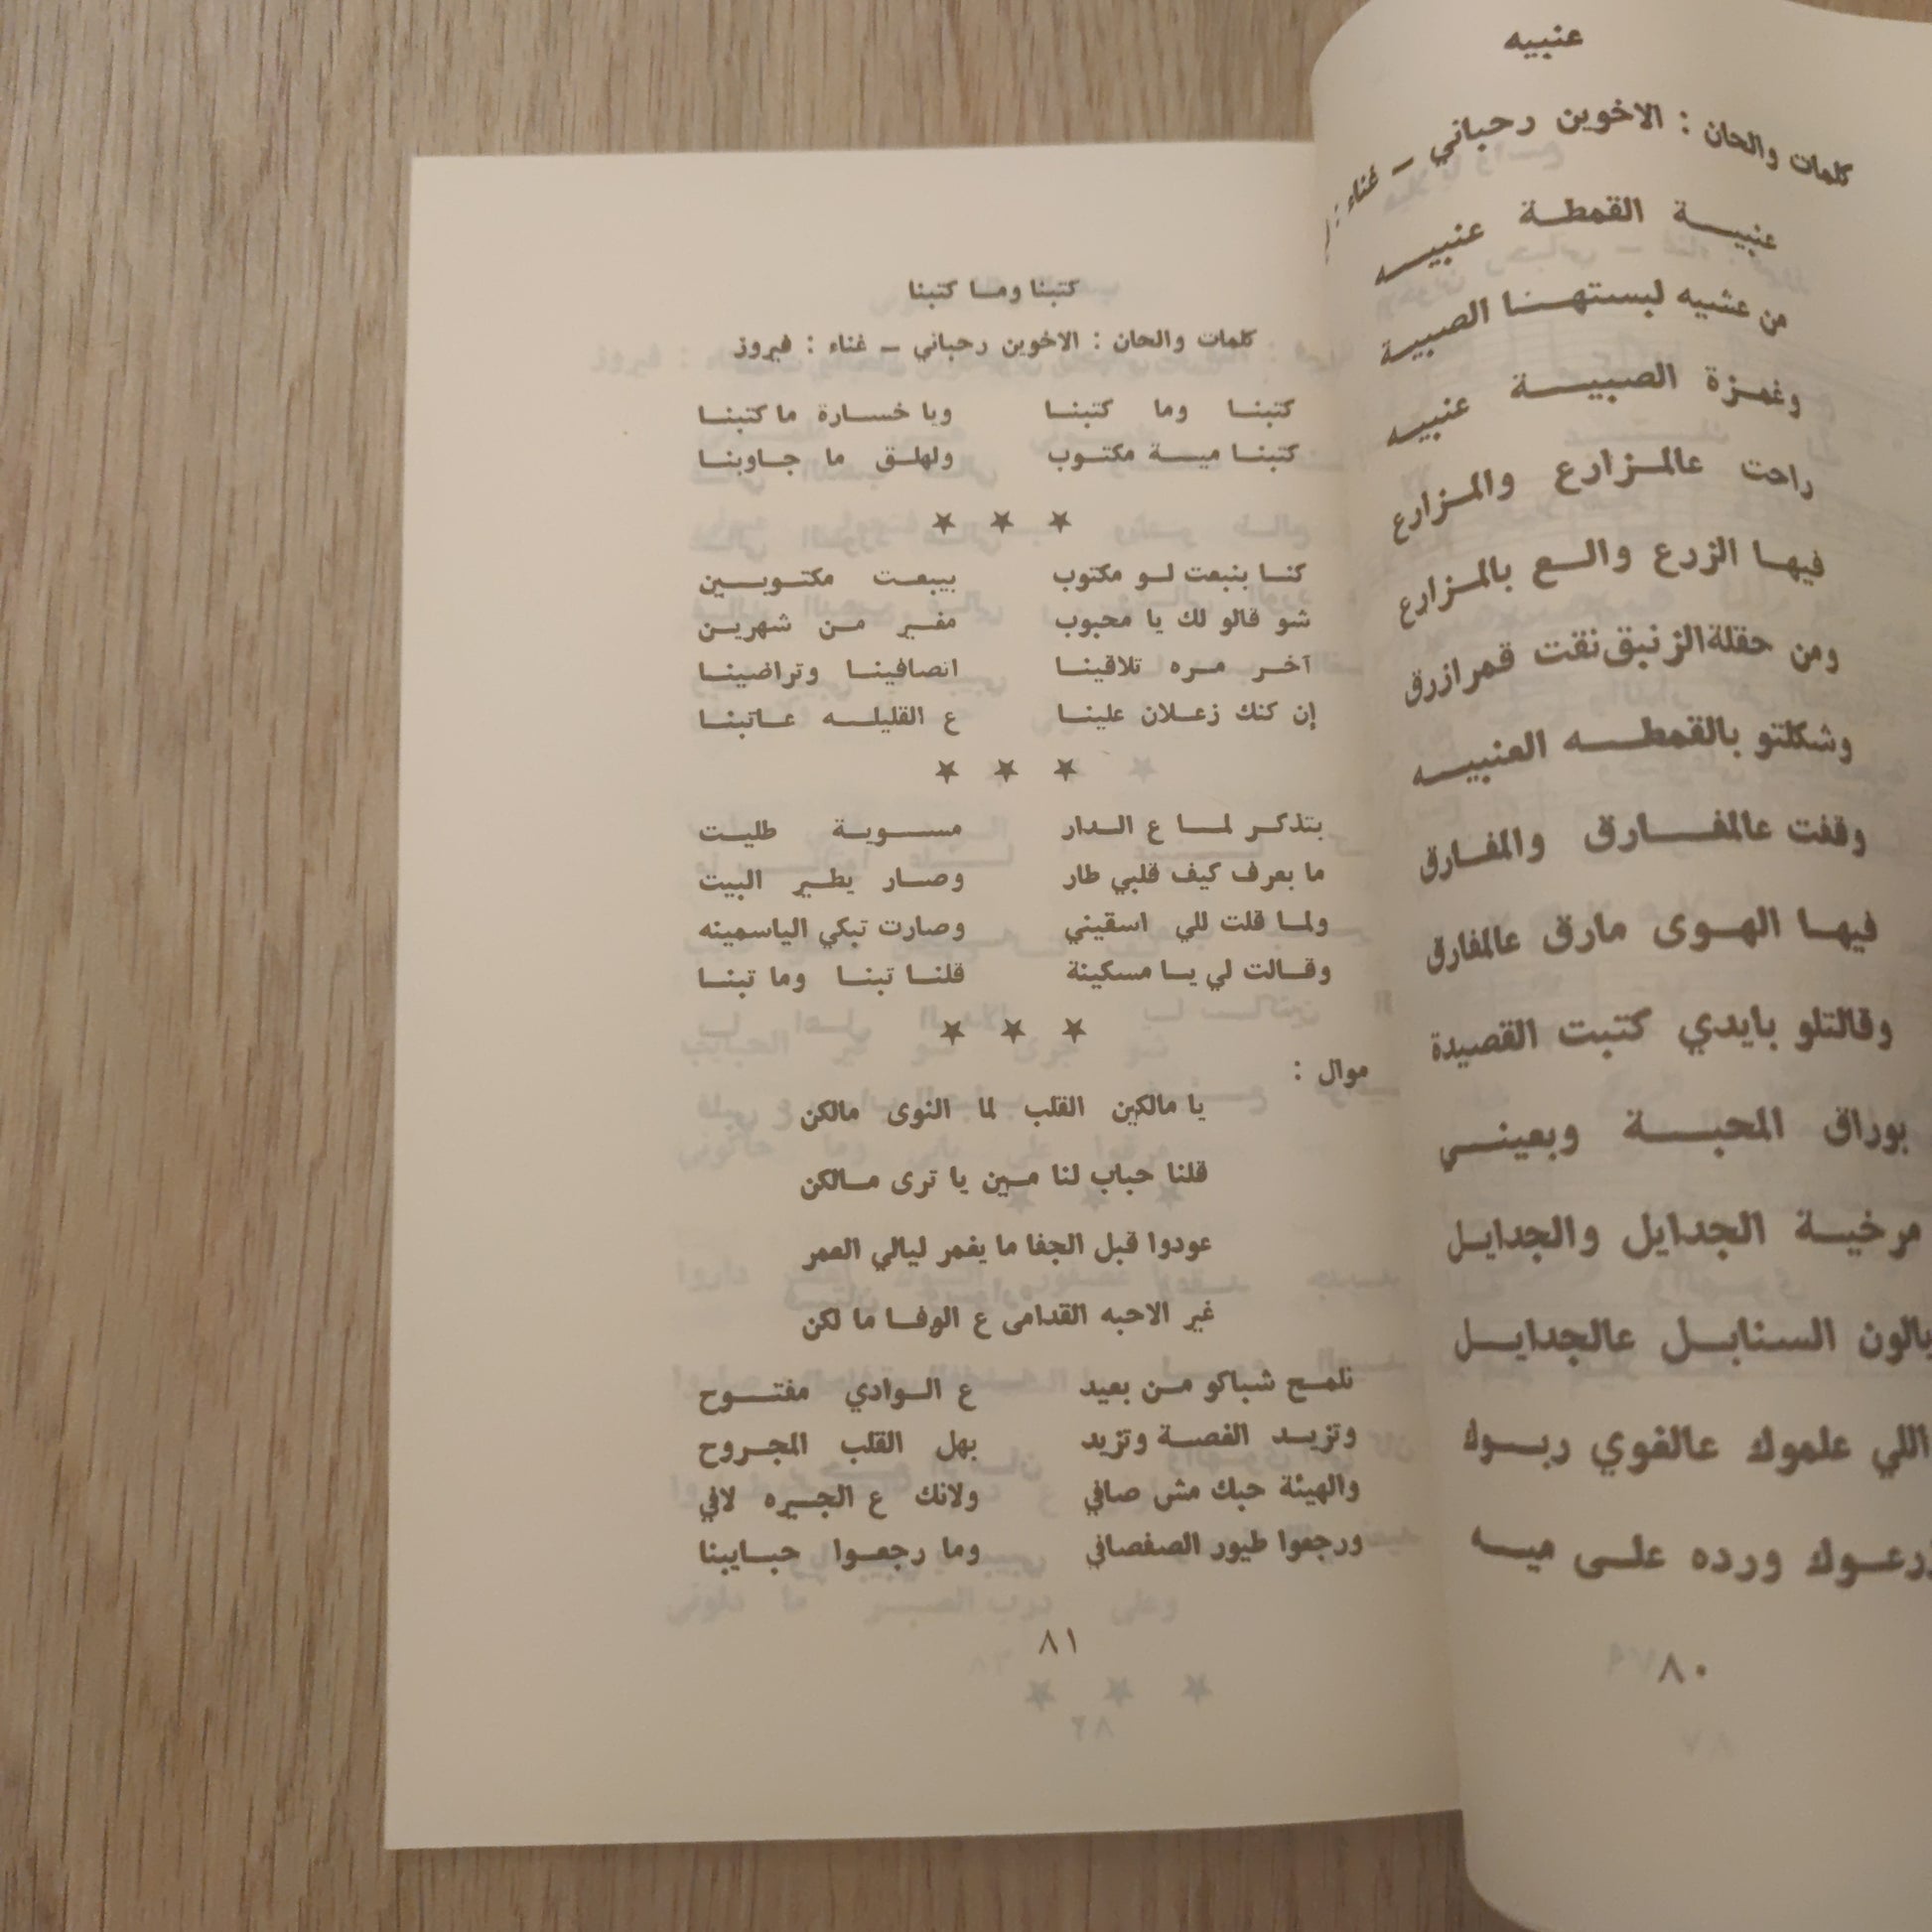 عنبيه
كلمات والحان : الاخوين رحباني – غناء :
عنبيـــة القمطـة عنبيـــه
من عشيه لبستهــنا الصبيـة
وغمـزة الصبيــــة عنبيـه
راحت عالمـزارع والمـزارع
فيهـا الزرع والـــع بالمـزارع
ومن حقلة الزنبق نقت قمر ازرق
وشكلتو بالقمطـــه العنبيـــه
وقفت عالمفــــارق والمفـارق
فيهـا الهـوى مارق عالمفارق
وقالتلو بايدي كتبت القصيدة
بوراق المحبــــة وبعينـــي
مرخيـة الجدايل والجدايـل
بالون السنابـل عالجدايـــل
اللي علموك عالغوي ربـــوك
زرعـوك ورده علـى ميـــه
٨٠
كتبنا ومـا كتبنا
كلمات والحان : الاخوين رحباني – غناء : فيروز
كتبنـا وما كتبنـا ويا خسـارة ما كتبنـا
كتبنـا ميـة مكتـوب ولهلـق ما جـاوبنـا
★ ★ ★
كنـا بنبعت لـو مكتوب بيبعـت مكتـوبـين
شو قالو لك يا محبوب مغـير مـن شهريـن
آخـر مـره تلاقينـا اتصافينـا وتراضينـا
إن كنك زعـلان علينـا ع القليلـه عـاتبنـا
★ ★ ★
بتذكـر لمـا ع الـدار مسـويـة طليـت
ما بعرف كيف قلبي طار وصـار يطـير البيت
ولمـا قلت للي اسقيني وصارت تبكي الياسمينه
وقـالت لي يـا مسكينة قلنـا تبنـا وما تبنـا
★ ★ ★
موال :
يا مالكين القلب لما النوى مالكن
قلنا حباب لنا مـين يا ترى مـالكن
عودوا قبل الجفا ما يغمر ليالي العمر
غير الاحبه القدامى ع الوفـا ما لكن
نلمـح شباكو مـن بعيد ع الـوادي مفتـوح
وتزيـد الغصـة وتزيد بهل القلب المجـروح
والهيئة حبك مش صافي ولانك ع الجـيره لافي
ورجعوا طيور الصفصافي وما رجعـوا حبـايبنا
٨١